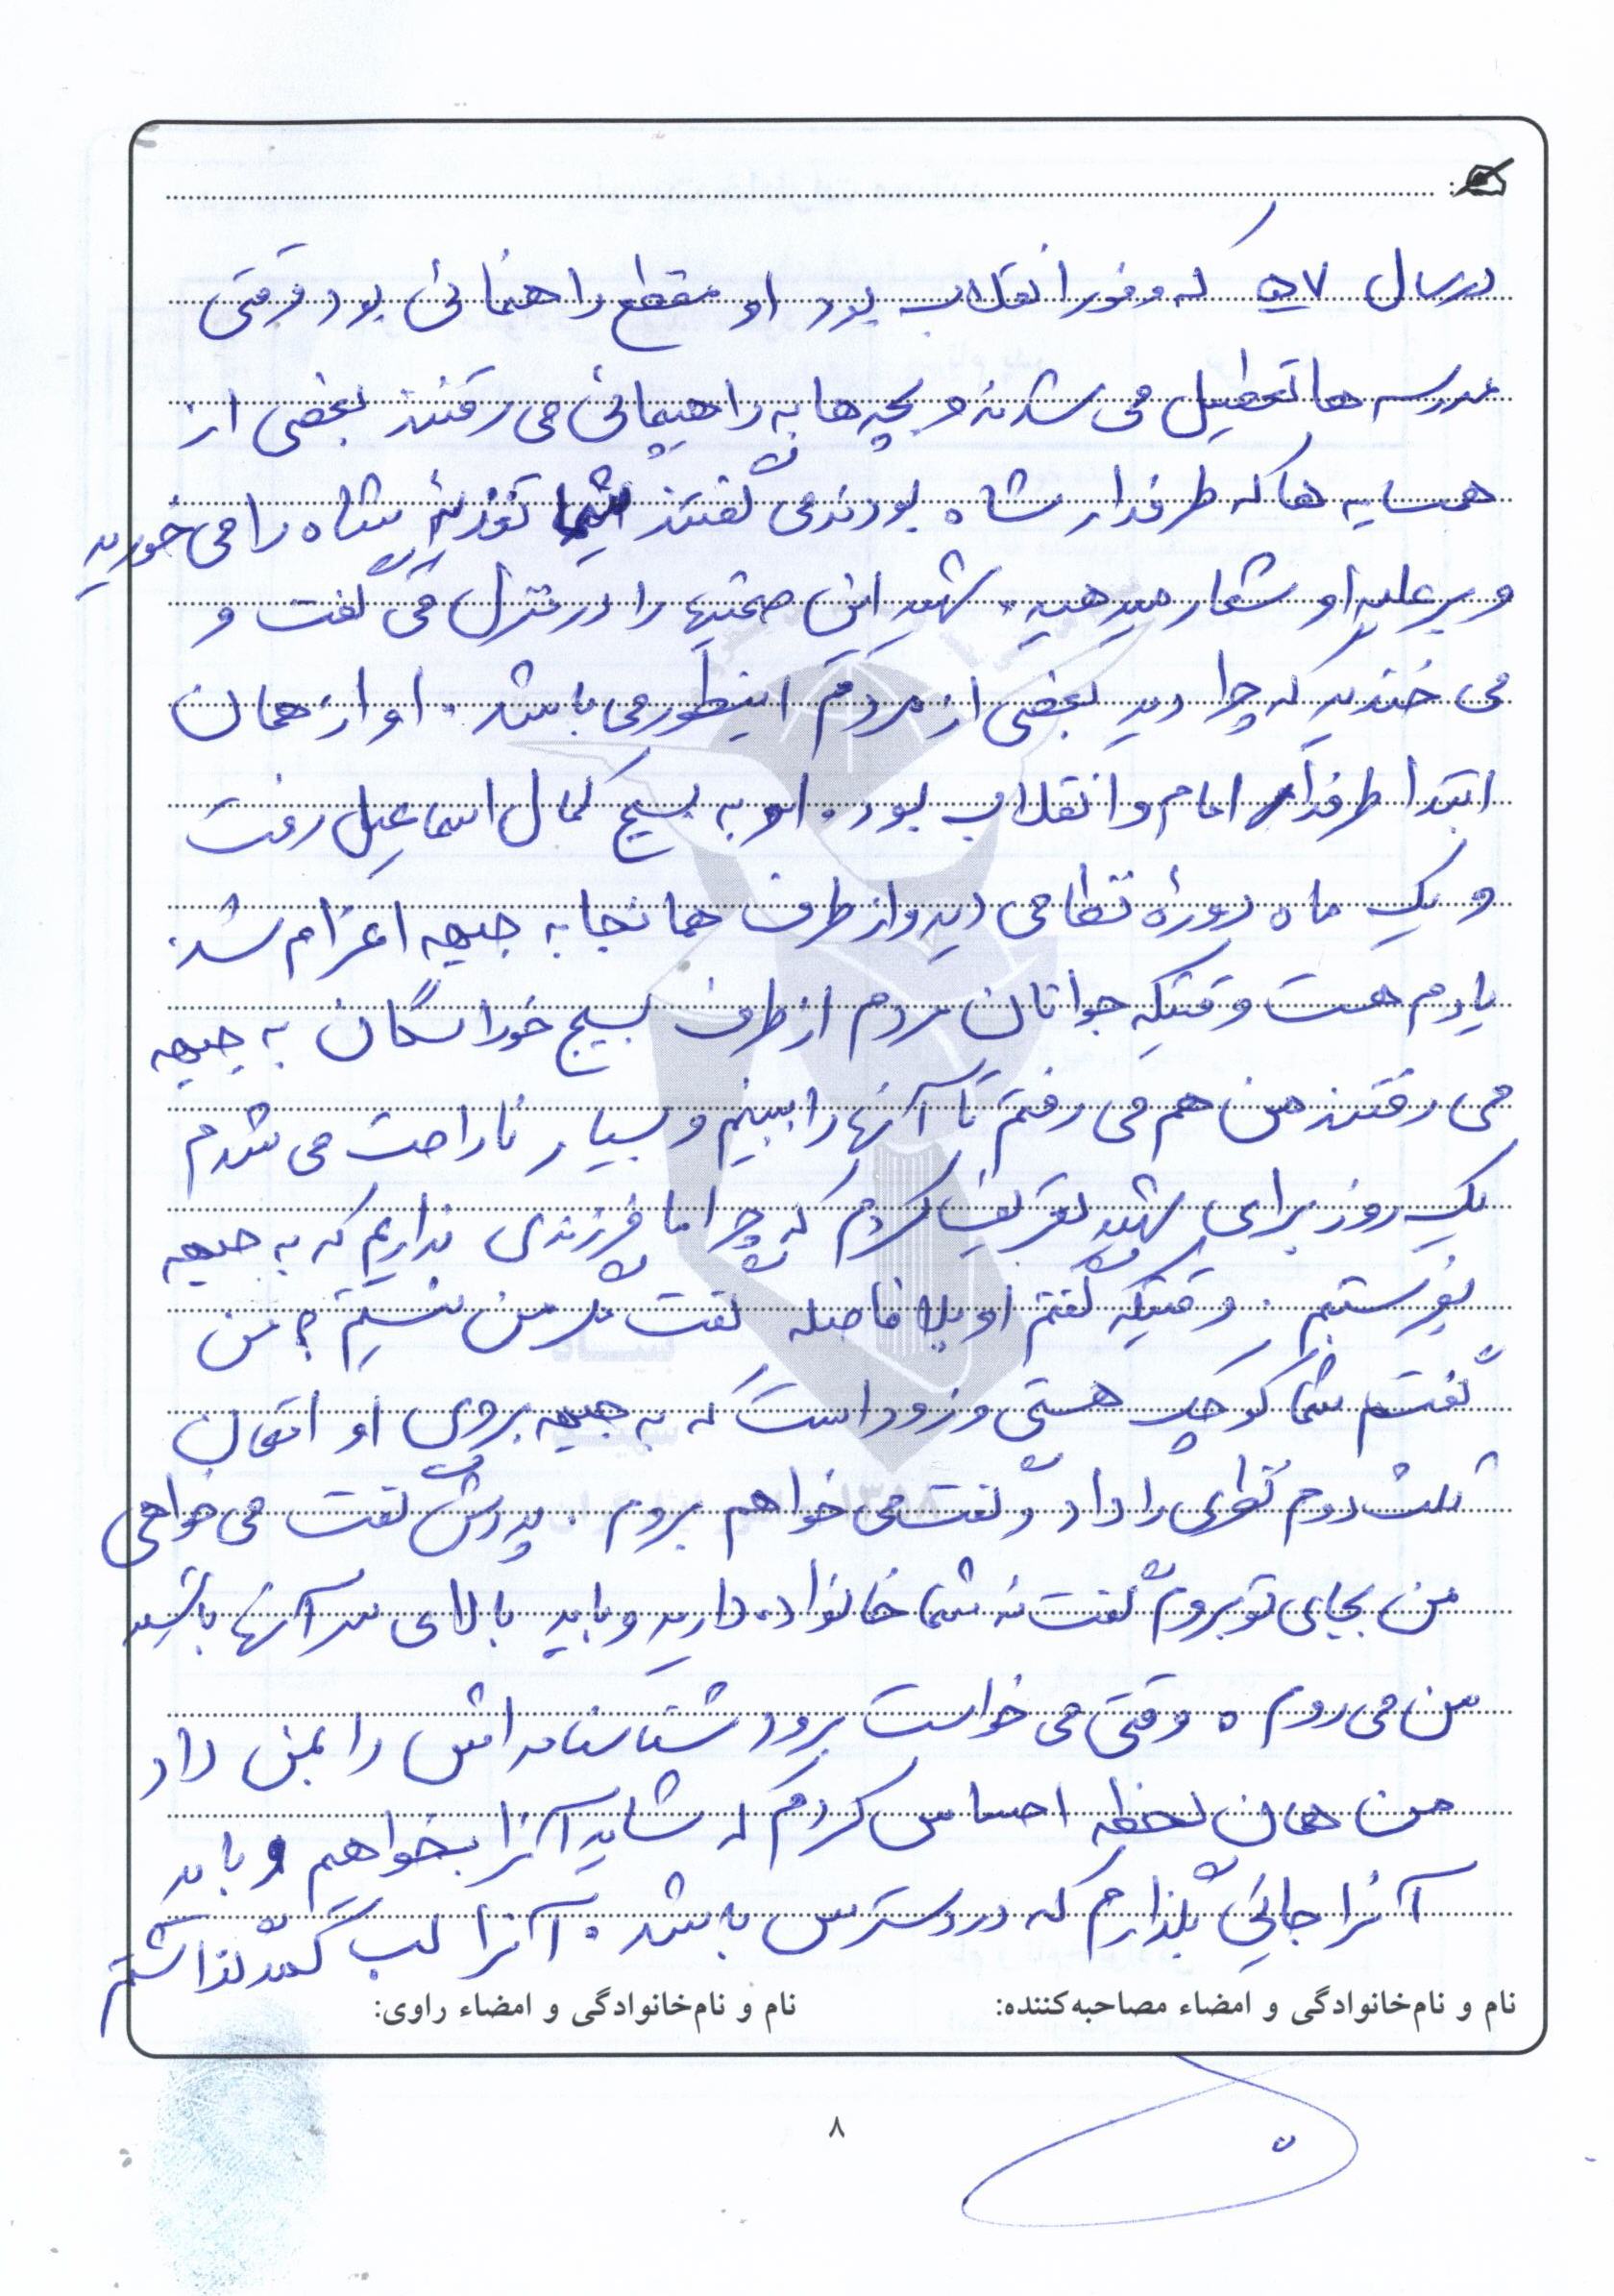 در سال ۵۷ که وفور انقلاب بود او مقطع راهنمائی بود وقتی
مدرسه ها تعطیل می شدند و بچه ها به راهپیمائی می رفتند بعضی از
همسایه ها که طرفدار شاه بودند می گفتند شما تغذیهٔ شاه را می خورید
و بر علیه او شعار میدهید. شهید این صحبتها را در منزل می گفت و
می خندید که چرا دید بعضی از مردم اینطور می باشد. او از همان
ابتدا طرفدار امام و انقلاب بود. او به بسیج کمال اسماعیل رفت
و یک ماه دورهٔ نظامی دید و از طرف همانجا به جبهه اعزام شد.
یادم هست وقتیکه جوانان مردم از طرف بسیج خوراسگان به جبهه
می رفتند من هم می رفتم تا آنها را ببینم و بسیار ناراحت می شدم
یک روز برای شهید تعریف کردم که چرا ما فرزندی نداریم که به جبهه
بفرستیم. وقتیکه گفتم او بلا فاصله گفت مگر من نیستم؟ من
گفتم شما کوچک هستی و زود است که به جبهه بروی او امتحان
ثلث دوم نظری را داد و گفت می خواهم بروم. پدرش گفت می خواهی
من بجای تو بروم گفت نه شما خانواده دارید و باید بالای سر آنها باشید
من می روم. وقتی می خواست برود شناسنامه اش را بمن داد
من همان لحظه احساس کردم که شاید آنرا بخواهم و باید
آنرا جائی بگذارم که در دسترس باشد. آنرا لب کمد گذاشتم
نام و نام‌خانوادگی و امضاء مصاحبه‌کننده: نام و نام‌خانوادگی و امضاء راوی:
۸